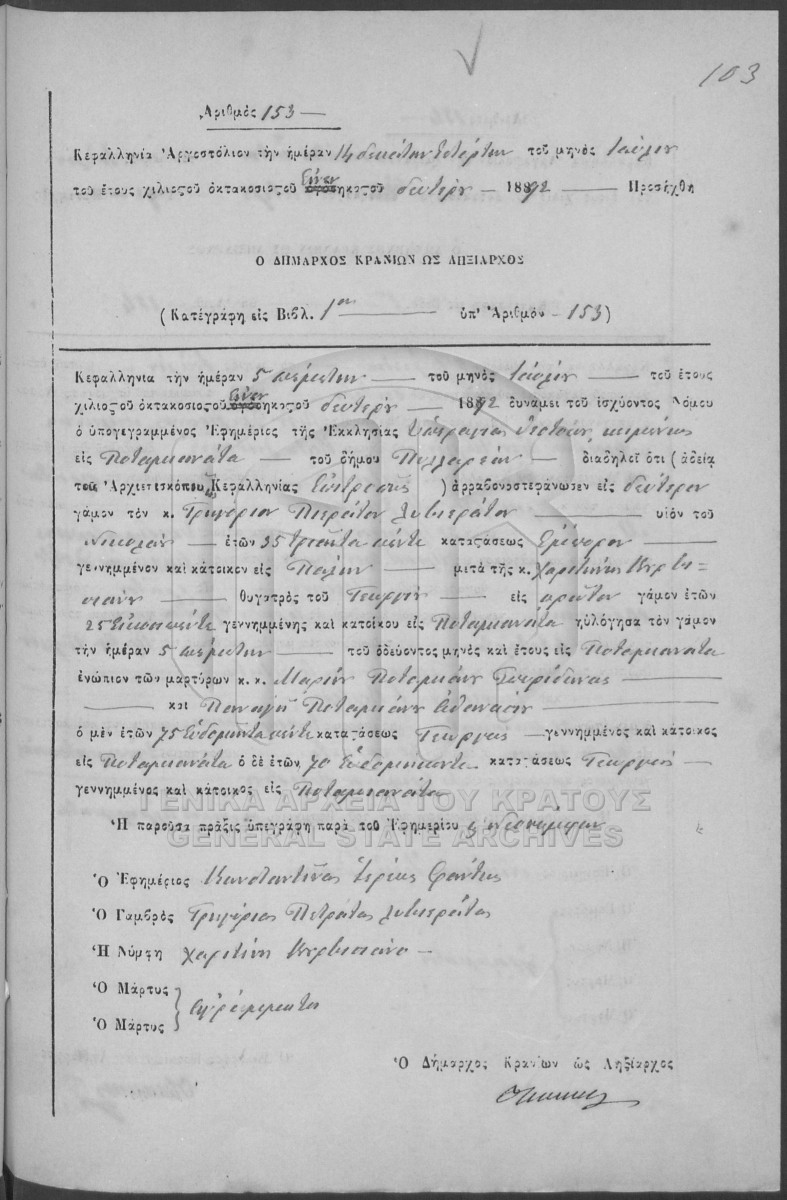 103
Ἀριθμὸς 153 —
Κεφαλληνία Ἀργοστόλιον τὴν ἡμέραν 14 δεκάτην τετάρτην τοῦ μηνὸς Ἰουλίου
τοῦ ἔτους χιλιοστοῦ ὀκτακοσιοστοῦ ἐνενηκοστοῦ δευτέρου — 1892 — Προσήχθη
Ὁ ΔΗΜΑΡΧΟΣ ΚΡΑΝΙΩΝ ΩΣ ΛΗΞΙΑΡΧΟΣ
(Κατεγράφη εἰς Βιβλ. 1ον — ὑπ' Ἀριθμὸν — 153)
Κεφαλληνία τὴν ἡμέραν 5 πέμπτην — τοῦ μηνὸς Ἰουλίου — τοῦ ἔτους
χιλιοστοῦ ὀκτακοσιοστοῦ ἐνενηκοστοῦ δευτέρου — 1892 δυνάμει τοῦ ἰσχύοντος Νόμου
ὁ ὑπογεγραμμένος Ἐφημέριος τῆς Ἐκκλησίας Ὑπεραγίας Θεοτόκου
εἰς Ποταμιανάτα — τοῦ δήμου — διαδηλεῖ ὅτι (ἀδείᾳ
τοῦ Ἀρχιεπισκόπου Κεφαλληνίας) ἀρραβονοστεφάνωσεν εἰς δεύτερον
γάμον τὸν κ. Γρηγόριον Πιεράτον — υἱὸν τοῦ
Νικολάου — ἐτῶν 35 τριάντα πέντε καταστάσεως Ἔμπορον —
γεννημμένον καὶ κάτοικον εἰς — μετὰ τῆς κ. Χαριτίνης
— θυγατρὸς τοῦ Γεωργίου — εἰς πρῶτον γάμον ἐτῶν
25 Εἴκοσι πέντε γεννημμένης καὶ κατοίκου εἰς Ποταμιανάτα ηὐλόγησα τὸν γάμον
τὴν ἡμέραν 5 πέμπτην — τοῦ ὁδεύοντος μηνὸς καὶ ἔτους εἰς Ποταμιανάτα
ἐνώπιον τῶν μαρτύρων κ. κ. Μαρίνου Ποταμιάνου Σπυρίδωνος —
— καὶ Παναγῆ Ποταμιάνου Ἀθανασίου —
ὁ μὲν ἐτῶν 75 Ἑβδομῆντα πέντε καταστάσεως Γεωργὸς — γεννημμένος καὶ κάτοικος
εἰς Ποταμιανάτα ὁ δὲ ἐτῶν 70 Ἑβδομῆκοντα καταστάσεως Γεωργὸς —
γεννημμένος καὶ κάτοικος εἰς Ποταμιανάτα
ΓΕΝΙΚΑ ΑΡΧΕΙΑ ΤΟΥ ΚΡΑΤΟΥΣ
Ἡ παροῦσα πρᾶξις ὑπεγράφη παρὰ τοῦ Ἐφημερίου
GENERAL STATE ARCHIVES
Ὁ Ἐφημέριος Κωνσταντῖνος Ἱερεὺς
Ὁ Γαμβρὸς Γρηγόριος Πιεράτος
Ἡ Νύμφη Χαριτίνη
Ὁ Μάρτυς
ἀγράμματοι
Ὁ Μάρτυς
Ὁ Δήμαρχος Κρανίων ὡς Ληξίαρχος